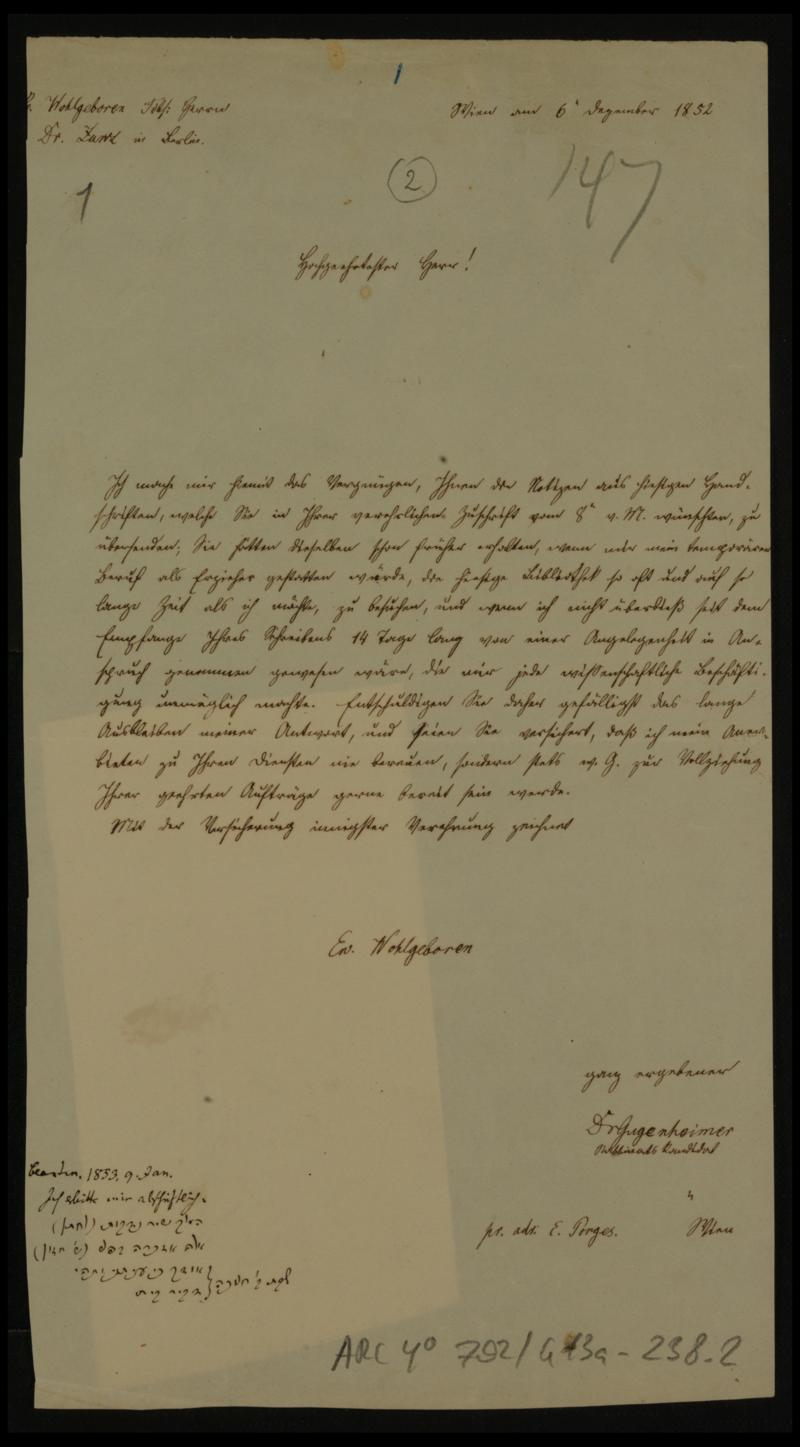 1
Wohlgeboren Herrn
Dr. Zunz in Berlin.
Wien am 6ⁿ Dezember 1852
1
2
147
Hochgeehrtester Herr!
Ich mache mir hiemit das Vergnügen, Ihnen die Notizen aus hiesigen Hand-
schriften, welche Sie in Ihrer verehrlichen Zuschrift vom 8ⁿ v. M. wünschten, zu
übersenden; Sie hätten dieselben schon früher erhalten, wenn mir mein temporärer
Beruf als Erzieher gestatten würde, die hiesige Bibliothek so oft und auf so
lange Zeit als ich möchte, zu besuchen, und wenn ich nicht überdieß seit dem
Empfange Ihres Schreibens 14 Tage lang von einer Angelegenheit in An-
spruch genommen gewesen wäre, die mir jede wißenschaftliche Beschäfti-
gung unmöglich machte. Entschuldigen Sie daher gefälligst das lange
Ausbleiben meiner Antwort, und seien Sie versichert, daß ich mein Aner-
bieten zu Ihren Diensten nie bereuen, sondern stets w. G. zur Vollziehung
Ihrer geehrten Aufträge gerne bereit sein werde.
Mit der Versicherung innigster Verehrung zeichnet
Ew. Wohlgeboren
ganz ergebener
Dr Gugenheimer
Rabbinats Kandidat
pr. adr. E. Porges. Wien
1853, 9. Jan.
Ich bitte mir abschriftlich
ARC 4° 792/G13a-238.2